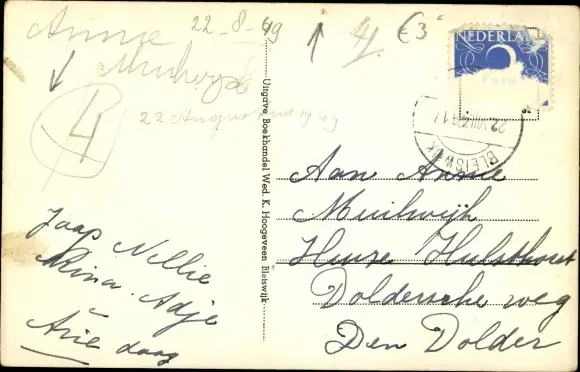 Anne
Muilwijk
22-8-49
4
€3
4
22 Augustus 1949
Jaap Nellie
Mina. Adje
Arie daag
Uitgave Boekhandel Wed. K. Hoogeveen Bleiswijk
NEDERLAND
Foto
BLEISWIJK
Aan Annie
Muilwijk
Huize Hulsthorst
Doldersche weg
Den Dolder